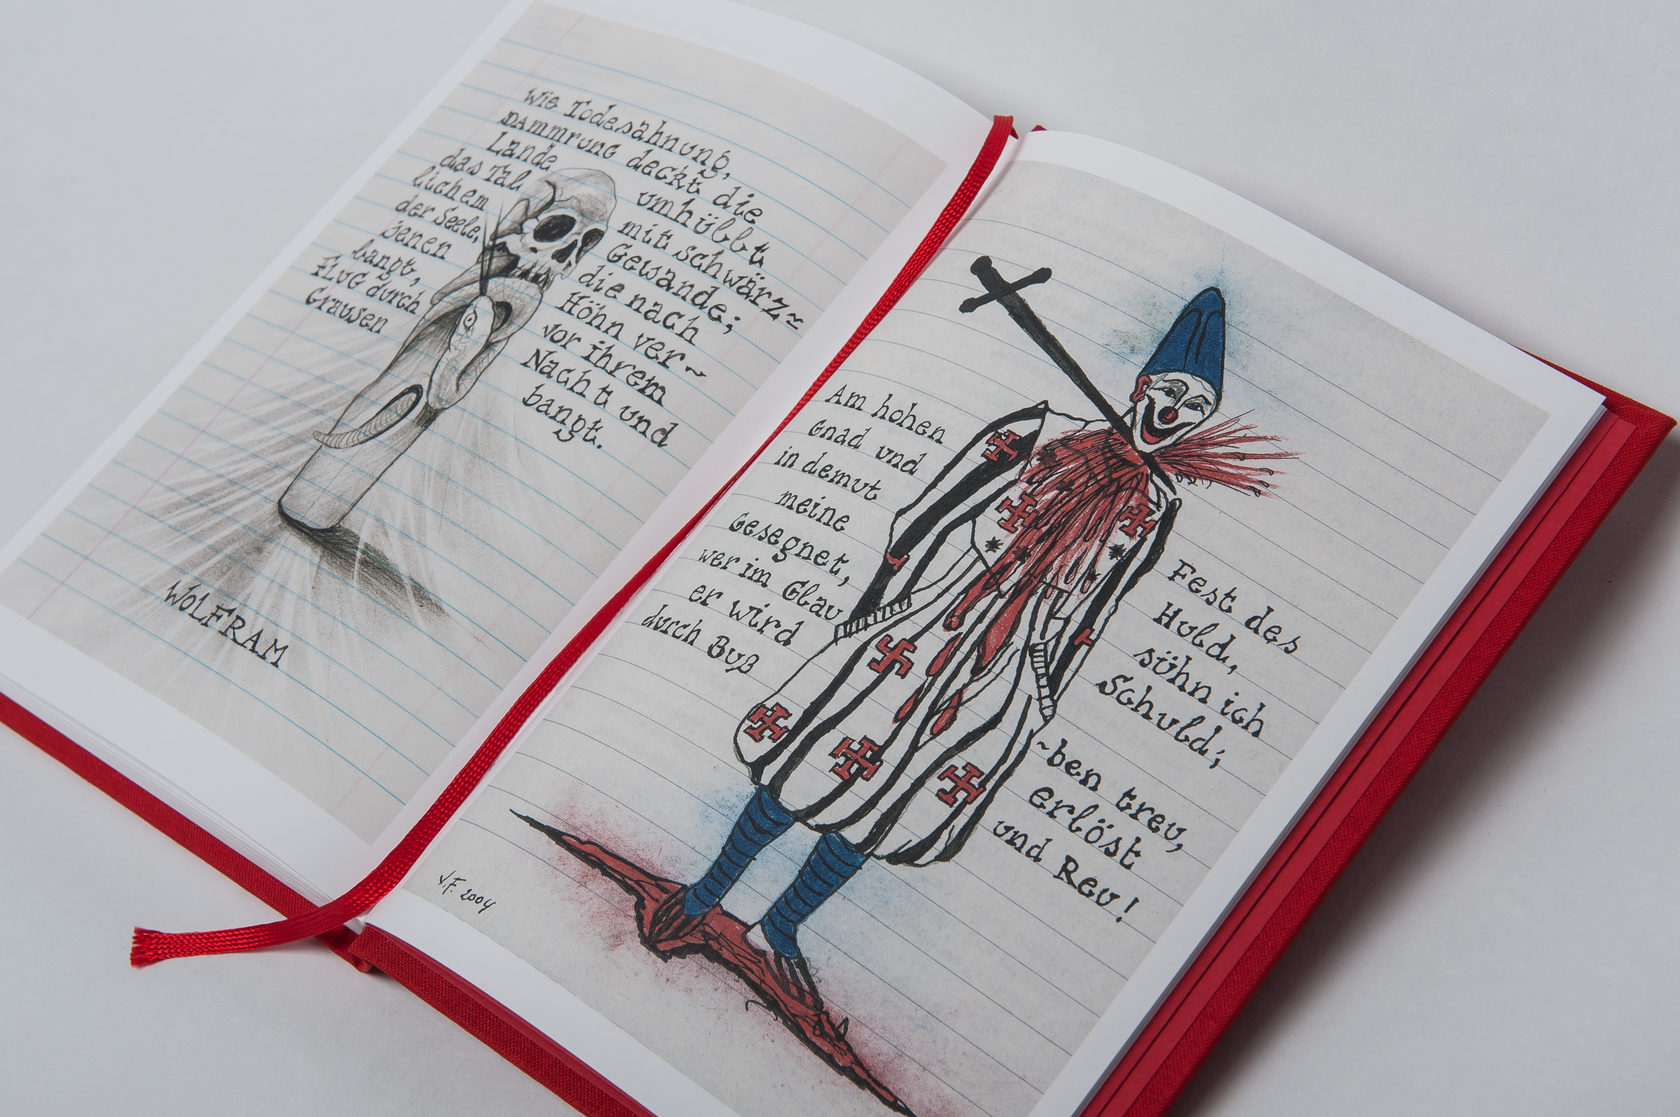 Wie Todesahnung,
Dämmrung deckt die
Lande umhüllt
das Tal mit schwärz~
lichem Gewande;
der Seele, die nach
jenen Höhn ver~
langt, vor ihrem
Flug durch Nacht und
Grausen bangt.
WOLFRAM
Am hohen Fest des
Gnad und Huld,
in demut söhn ich
meine Schuld;
Gesegnet,
wer im Glau ~ben treu,
er wird erlöst
durch Buß und Reu!
J.F. 2004